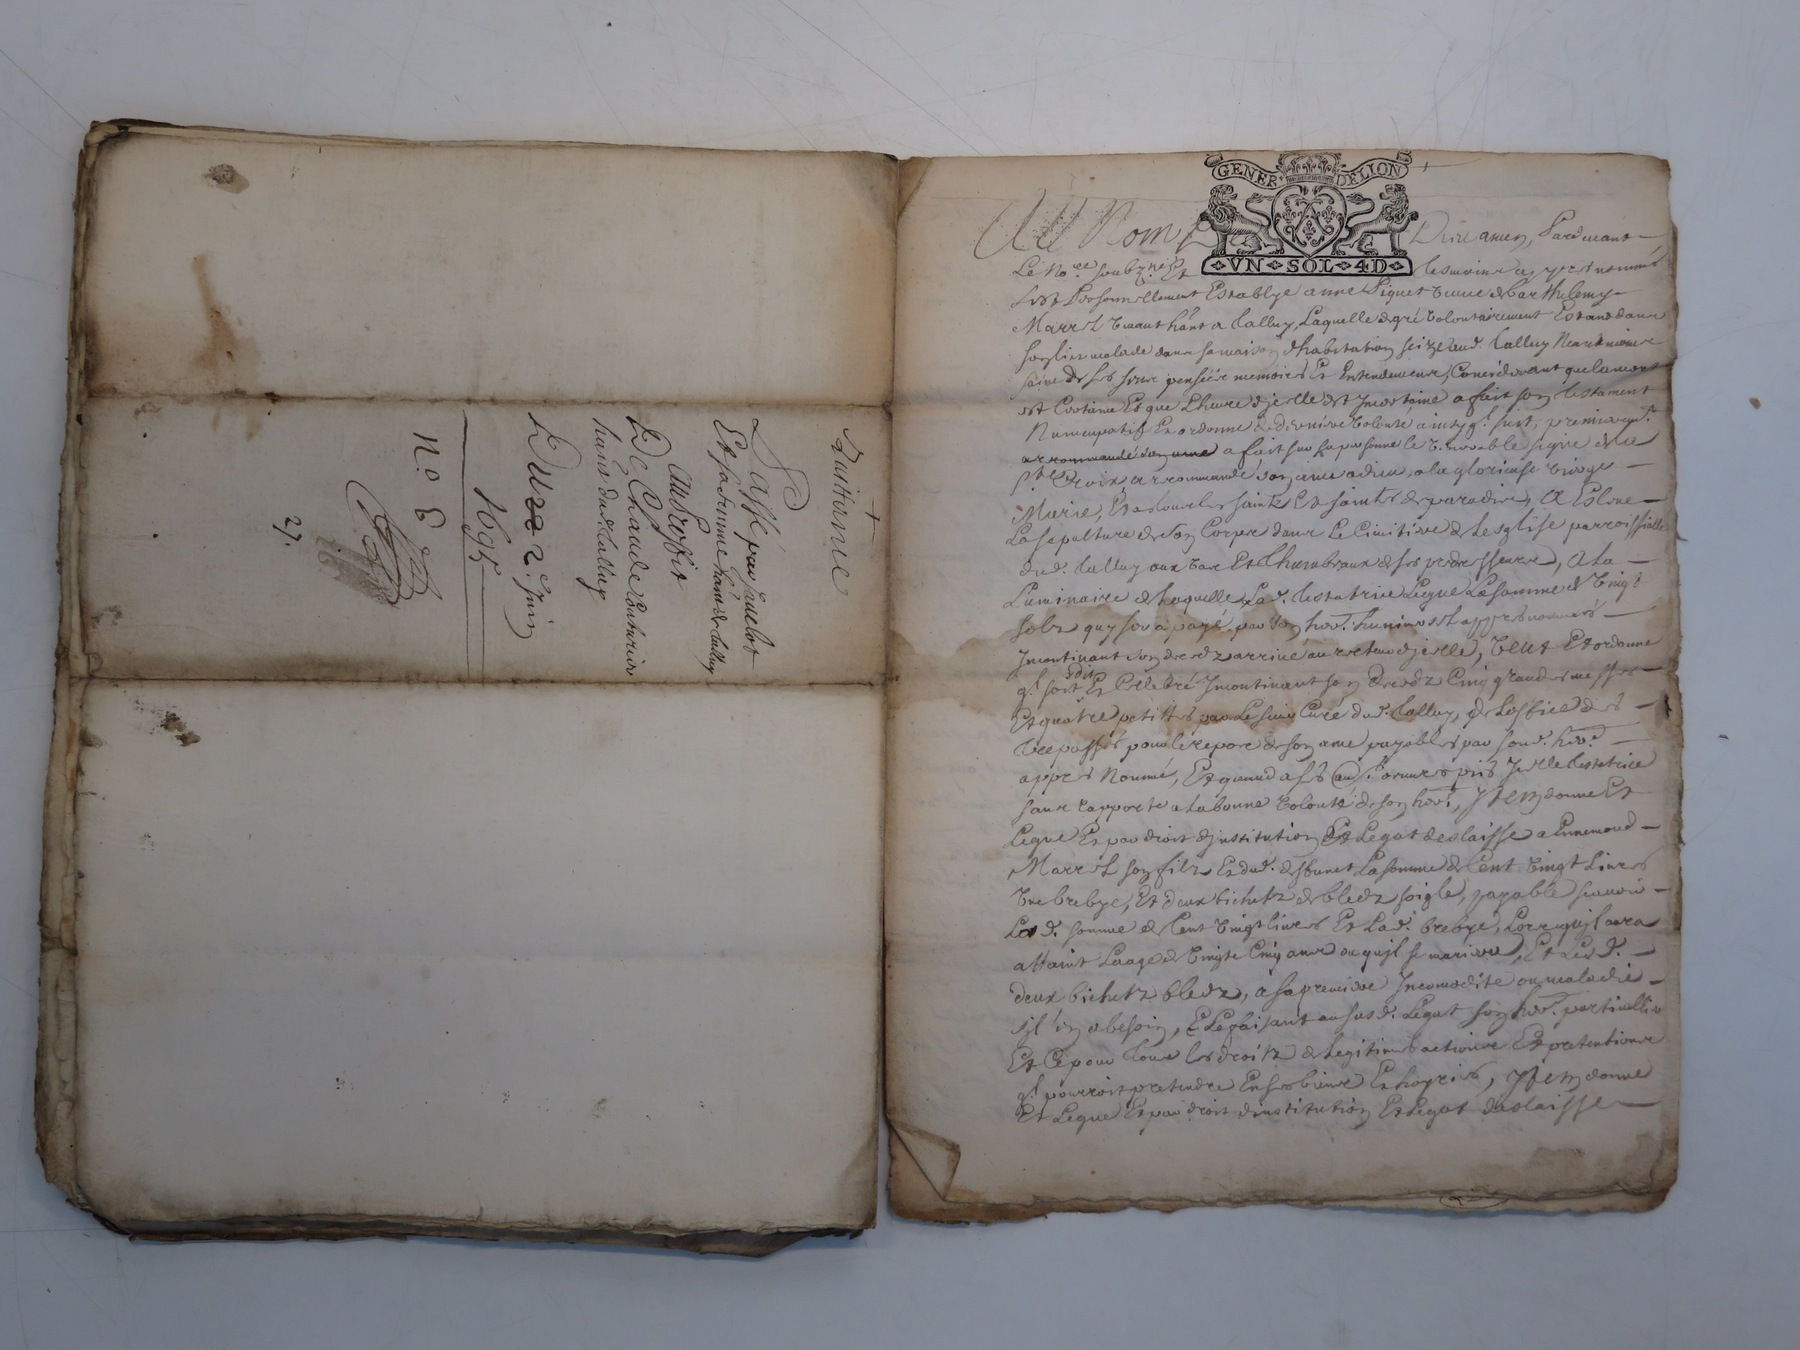 +
Quittance
Passé par
Et sa femme hant de Lalluy
Au Proffit
De Claude Couturier
hant dud. Lalluy
Du 2 2. Juin
1695
n.o 6
27.
GENER DELION
VN SOL 4D
Au Nom De Dieu amen, Pardevant
Le No.re soubz.né Et tesmoins cy apres nommés
s'est Personnellement Establye anne Piguet veuve de barthelemy
Marrel vivant hant a Lalluy, Laquelle de gré volontairement Estand dans
son lict malade dans sa maison d'habitation seize aud. Lalluy Neantmoins
saine de ses sens pensées memoires Et Entendement, Considerant que la mort
est Certaine Et que L'heure d'jcelle est Incertaine a fait son testament
Nuncupatif Et ordonne de derniere volonté ainsy q.l suit, premierem.t
a recommandé son ame a fait sur sa personne le venerable signe de la
s.te Croix, a recommandé son ame a dieu, a la glorieuse vierge
Marie, Et a tous les saints Et saintes de paradis, A Esleue
La sepulture de son Corps dans Le Cimitiere de Lesglise parroissialle
dud. Lalluy aux vas Et thumbeaux de ses predecesseurs, A la
Luminaire de laquelle Lad. testatrice Legue La somme de vingt
solz qui sera payé par son her. universel appres nommé
Incontinant son decedz arrivé au d'jcelle, veut Et ordonne
q.l soit dit Et Celebré Incontinant son Decedz Cinq grandes messes
Et quatre petittes par Le sieur Curé dud. Lalluy, de Loffice des
trepassés pour le repos de son ame payables par sond. her.
appres Nommé, Et quand a ses aut. aumosnes pies Jcelle testatrice
sans raporte a la bonne volonté de son her., Jtem donne Et
Legue Et par droit d'institution Et Legat deslaisse a Ennemond
Marrel son filz Et dud. deffunct La somme de Cent vingt Livres
vne brebye, Et deux bichetz de bledz soigle, payable scavoir
Lad. somme de Cent vingt livres Et Lad. brebye, Lors qu'jl aura
attaint Laage de vingte Cinq ans ou qu'jl se mariera, Et Lesd.
deux bichetz bledz, a sa premiere Incomodite ou maladie
s'jl en a besoin, Le faisant au susd. Legat son her. particullier
Et Ce pour tous les droitz de legitimes actions Et pretentions
q.l pourroit pretendre En ses biens Et hoyries, Jtem donne
Et Legue Et par droit d'institution Et Legat deslaisse